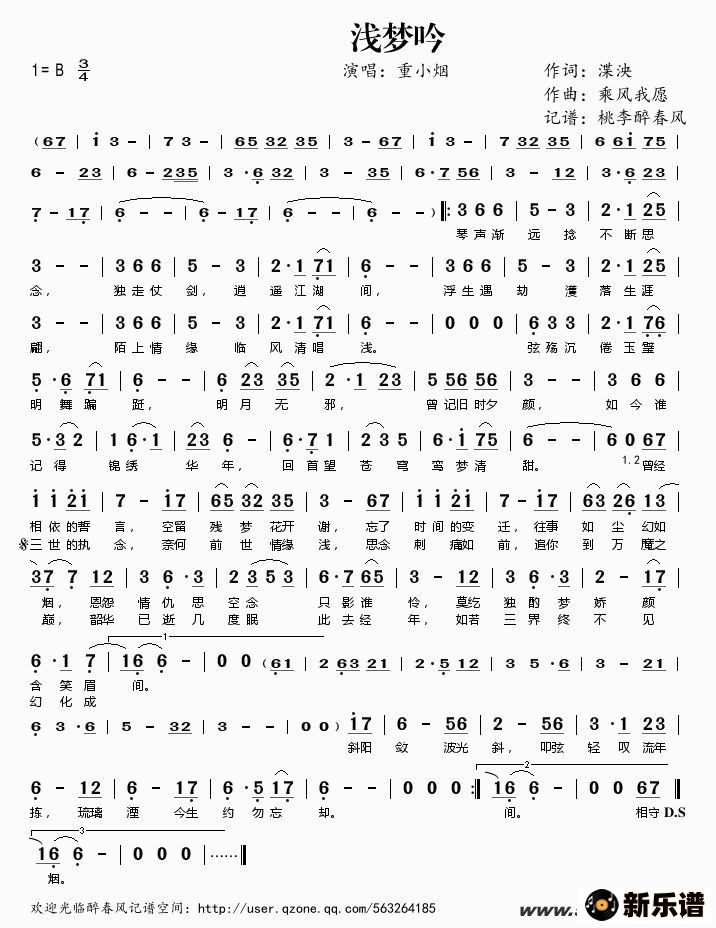 浅梦吟
1= B 3/4
演唱：重小烟
作词：渫泱
作曲：乘风我愿
记谱：桃李醉春风
( 67 | i 3 - | 7 3 - | 65 32 35 | 3 - - | i 3 - | 7 32 35 | 6 6i 75 |
6 - 23 | 6 - 235 | 3 · 6 32 | 3 - 35 | 6 · 7 56 | 3 - 12 | 3 · 6 23 |
7 - 17 | 6 - - | 6 - 17 | 6 - - | 6 - - ) ‖: 3 6 6 | 5 - 3 | 2 · 1 25 |
琴声渐 远 捻 不断思
3 - - | 3 6 6 | 5 - 3 | 2 · 1 71 | 6 - - | 3 6 6 | 5 - 3 | 2 · 1 25 |
念， 独走仗 剑， 逍 遥江湖 间， 浮生遇 劫 濩 落生涯
3 - - | 3 6 6 | 5 - 3 | 2 · 1 71 | 6 - - | 0 0 0 | 6 3 3 | 2 · 1 76 |
翩， 陌上情 缘 临 风清唱 浅。 弦殇沉 倦玉璧
5 · 6 71 | 6 - - | 6 23 35 | 2 · 1 23 | 5 56 56 | 3 - - | 3 6 6 |
明 舞蹁 跹， 明月 无 邪， 曾记旧时夕 颜， 如今谁
5 · 3 2 | 1 6 · 1 | 23 6 - | 6 · 7 1 | 2 3 5 | 6 · i 75 | 6 - - | 6 0 67 |
记 得 锦绣 华 年， 回首望 苍 穹 鸾梦清 甜。 1.2 曾经
i i 2i | 7 - i7 | 65 32 35 | 3 - 67 | i i 2i | 7 - i7 | 63 26 13 |
相依的誓 言， 空留 残 梦 花开 谢， 忘了 时间的变 迁， 往事 如 尘 幻如
𝄋三世的执 念， 奈何 前 世 情缘 浅， 思念 刺 痛如 前， 追你 到 万 魔之
37 7 12 | 3 6 · 3 | 2 3 5 3 | 6 · 7 65 | 3 - 12 | 3 6 · 3 | 2 - 17 |
烟， 恩怨 情仇思 空念 只影谁 怜， 莫纥 独酌梦 娇 颜
巅， 韶华 已逝几 度眠 此去经 年， 如若 三界终 不 见
1
6 · 1 7 | 16 6 - | 0 0 (61 | 2 63 21 | 2 · 5 12 | 3 5 · 6 | 3 - 21 |
含 笑眉 间。
幻 化成
6 3 · 6 | 5 - 32 | 3 - - | 0 0 ) i7 | 6 - 56 | 2 - 56 | 3 · 1 23 |
斜阳 敛 波光 斜， 叩弦 轻 叹 流年
2
6 - 12 | 6 - 17 | 6 · 5 17 | 6 - - | 0 0 0 :‖ 16 6 - | 0 0 67 ‖
拣， 琉璃 湮 今生 约 勿忘 却。 间。 相守 D.S
3
16 6 - | 0 0 0 | ······ ‖
烟。
欢迎光临醉春风记谱空间：http://user.qzone.qq.com/563264185
www.
新乐谱